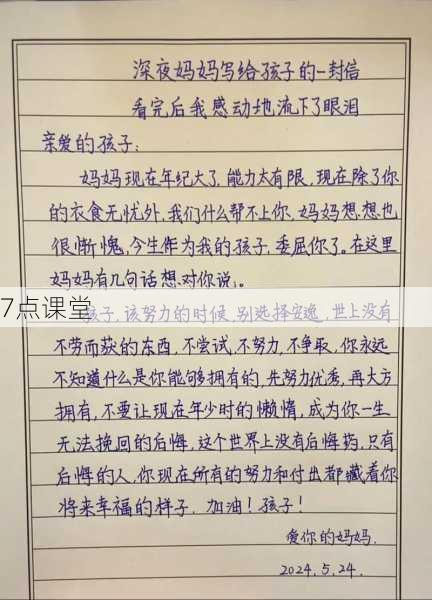 深夜妈妈写给孩子的一封信
看完后我感动地流下了眼泪
亲爱的孩子：
妈妈现在年纪大了，能力太有限，现在除了你
的衣食无忧外，我们什么帮不上你，妈妈想想也
很惭愧，今生作为我的孩子，委屈你了。在这里
妈妈有几句话想对你说：。
7点课堂
孩子，该努力的时候，别选择安逸，世上没有
不劳而获的东西，不尝试，不努力，不争取，你永远
不知道什么是你能够拥有的，先努力优秀，再大方
拥有，不要让现在年少时的懒惰，成为你一生
无法挽回的后悔，这个世界上没有后悔药，只有
后悔的人，你现在所有的努力和付出都藏着你
将来幸福的样子，加油！孩子！
爱你的妈妈.
2024.5.24.